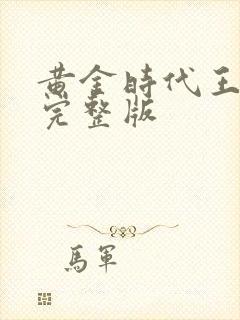 黄金時代王
完整版
馬軍